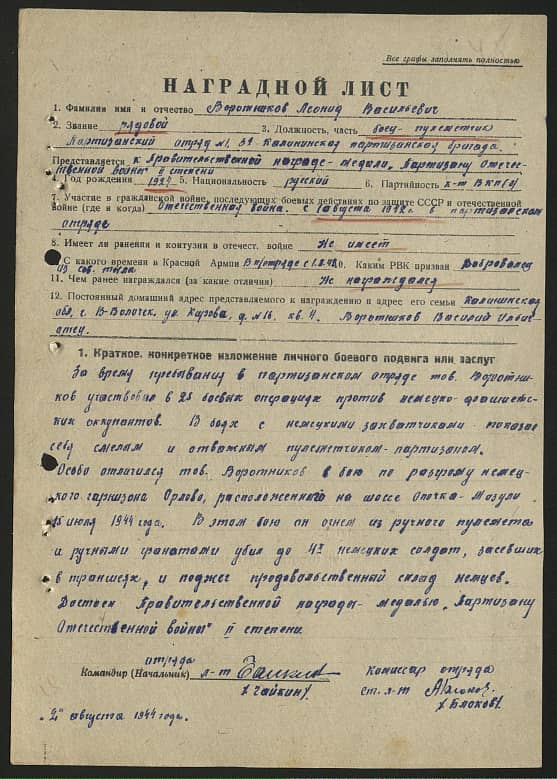 Все графы заполнять полностью
НАГРАДНОЙ ЛИСТ
1. Фамилия имя и отчество Воротников Леонид Васильевич
2. Звание рядовой 3. Должность, часть боец-пулеметчик
Партизанский отряд №1, 3я Калининская партизанская бригада.
Представляется к Правительственной награде-медали „Партизану Отече-
ственной Войны" II степени
4. Год рождения 5. Национальность русский 6. Партийность к-т ВКП(б)
7. Участие в гражданской войне, последующих боевых действиях по защите СССР и отечественной
войне (где и когда) Отечественная война. с 1 августа 1942г. в партизанском
отряде
8. Имеет ли ранения и контузии в отечест. войне Не имеет
С какого времени в Красной Армии В п/отряде с 1.8.42 10. Каким РВК призван Добровольно
из сов. тыла
11. Чем ранее награждался (за какие отличия) Не награждался
12. Постоянный домашний адрес представляемого к награждению и адрес его семьи Калининская
обл, г. В-Волочек, ул. Кирова, д. №16. кв. 4. Воротников Василий Ильич-
отец.
1. Краткое, конкретное изложение личного боевого подвига или заслуг
За время пребывания в партизанском отряде тов. Воротни-
ков участвовал в 25 боевых операциях против немецко-фашистс-
ких оккупантов. В боях с немецкими захватчиками показал
себя смелым и отважным пулеметчиком-партизаном.
Особо отличился тов. Воротников в бою по разгрому немец-
кого гарнизона Орлово, расположенного на шоссе Опочка-Мозули
июня 1944 года. В этом бою он огнем из ручного пулемета
и ручными гранатами убил до 4х немецких солдат, засевших
в траншеях, и поджег продовольственный склад немцев.
Достоин Правительственной награды-медалью „Партизану
Отечественной войны" II степени.
отряда
Командир (Начальник) л-т
/Чайкин/
комиссар отряда
ст. л-т
/Блоков/
„2" августа 1944 года.